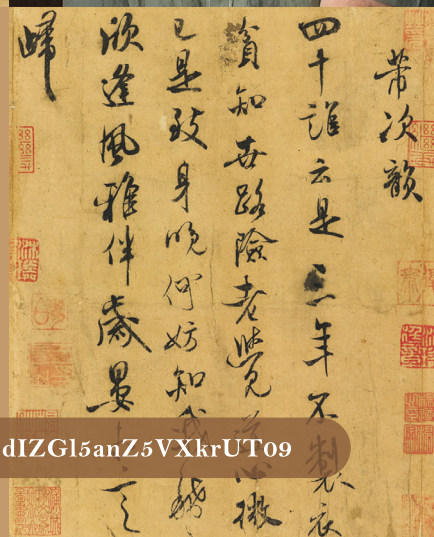 帶次韻
四十誰云是三年不製衣
貧知世路險老覺道心微
已是致身晚何妨知我稀
欣逢風雅伴歲晏
歸
dIZGl5anZ5VXkrUT09